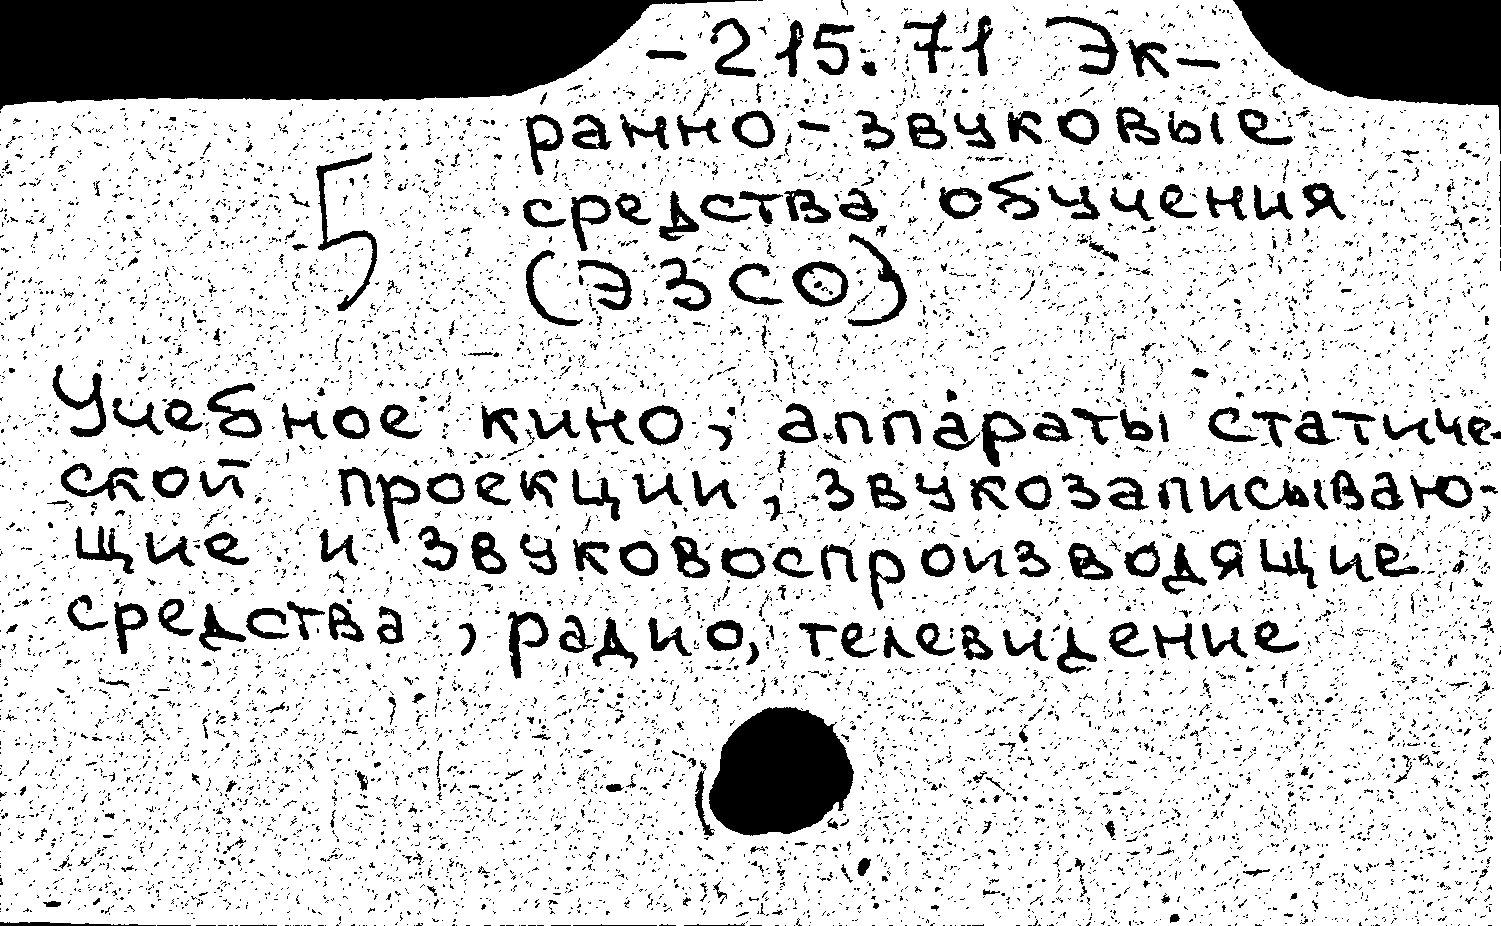 -215.71 Эк-
ранно-звуковые
5 средства обучения
(ЭЗСО)
Учебное кино, аппараты статиче-
ской проекции, звукозаписываю-
щие и звуковоспроизводящие
средства, радио, телевидение